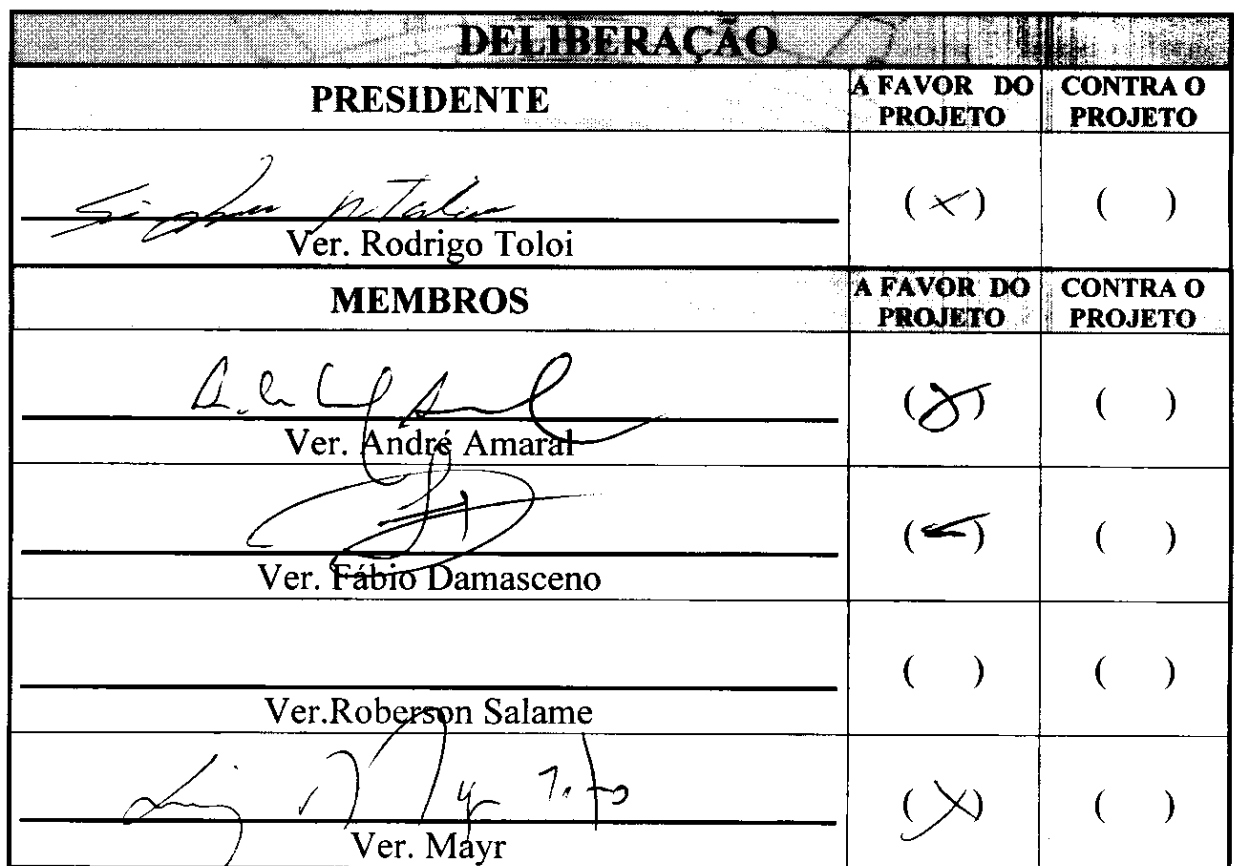 DELIBERAÇÃO
PRESIDENTE
A FAVOR DO PROJETO
CONTRA O PROJETO
(X)
( )
Ver. Rodrigo Toloi
MEMBROS
A FAVOR DO PROJETO
CONTRA O PROJETO
(X)
( )
Ver. André Amaral
( )
Ver. Fábio Damasceno
( )
( )
Ver.Roberson Salame
(X)
( )
Ver. Mayr